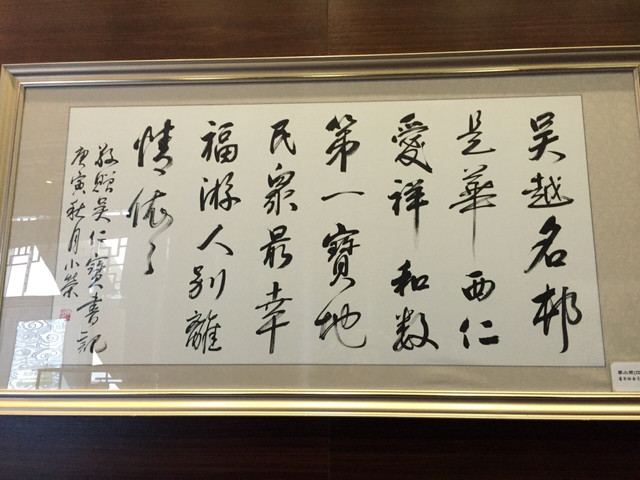 吴越名邨
是華西仁
愛祥和数
第一寶地
民衆最幸
福游人别離
情依々
敬贈吴仁寶書記
庚寅秋月小榮